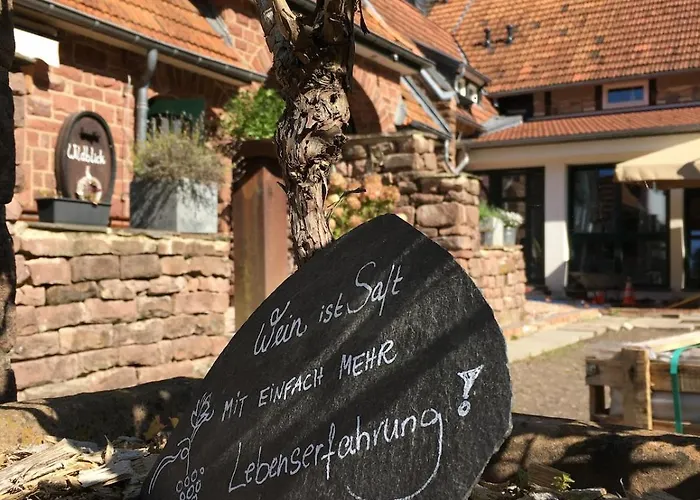 Wildblick
Wein ist Saft
MIT EINFACH MEHR
Lebenserfahrung!